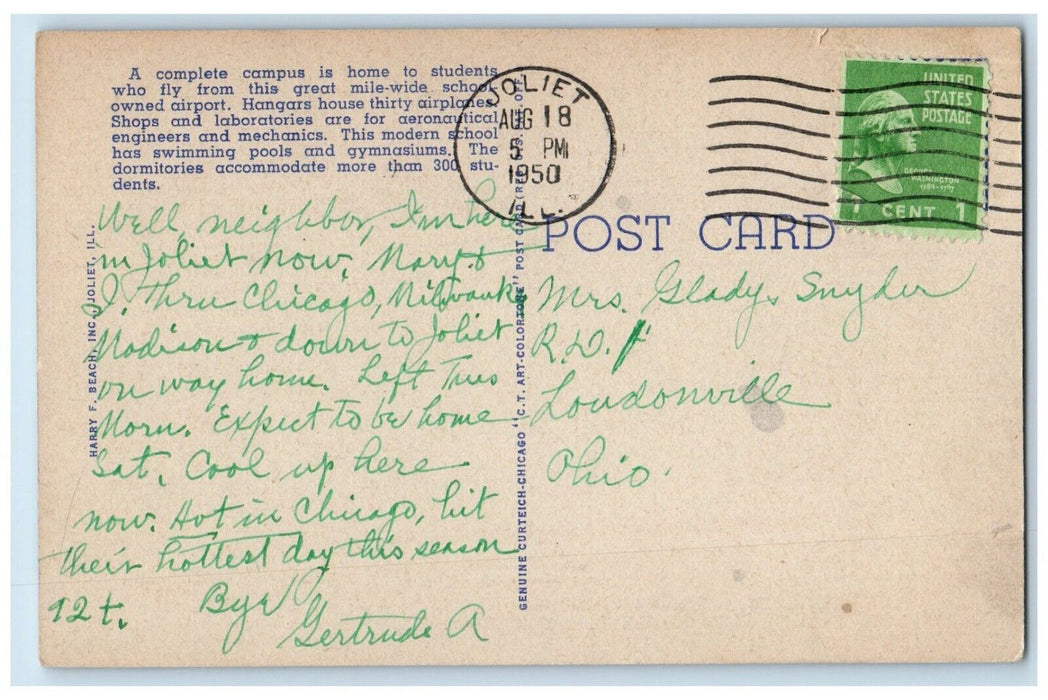 A complete campus is home to students
who fly from this great mile-wide school-
owned airport. Hangars house thirty airplanes.
Shops and laboratories are for aeronautical
engineers and mechanics. This modern school
has swimming pools and gymnasiums. The
dormitories accommodate more than 300 stu-
dents.
JOLIET
AUG 18
5 PM
1950
ILL.
UNITED
STATES
POSTAGE
GEORGE
WASHINGTON
1789-1797
1 CENT 1
POST CARD
Well, neighbor, I'm here
in Joliet now, Mary &
I. Thru Chicago, Milwauk
Madison & down to Joliet
on way home. Left Tues
Morn. Expect to be home
Sat. Cool up here
now. Hot in Chicago, hit
their hottest day this season
92 t.
Bye
Gertrude A
Mrs. Gladys Snyder
R.D. 1
Loudonville
Ohio.
HARRY F. BEACH, INC., JOLIET, ILL.
GENUINE CURTEICH-CHICAGO "C.T. ART-COLORTONE" POST CARD (REG. U.S. PAT. OFF.)